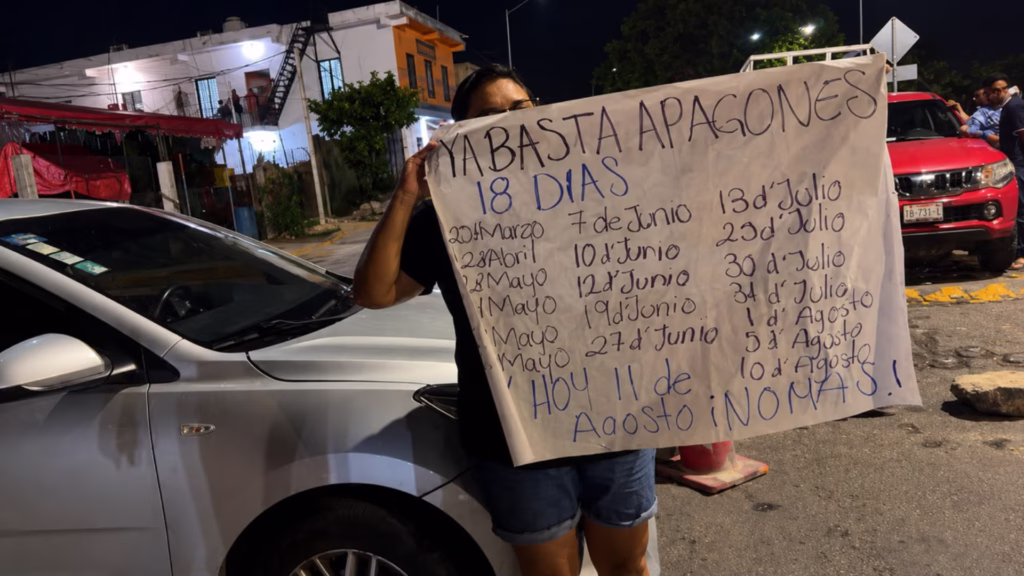 YA BASTA APAGONES
18 DIAS
Marzo 7 de Junio 13 d' Julio
28 Abril 10 d' Junio 29 d' Julio
8 Mayo 12 d' Junio 30 d' Julio
Mayo 19 d' Junio 31 d' Julio
Mayo 27 d' Junio 1 d' Agosto
Mayo 5 d' Agosto
10 d' Agosto
HOY 11 de
Agosto ¡NO MAS!